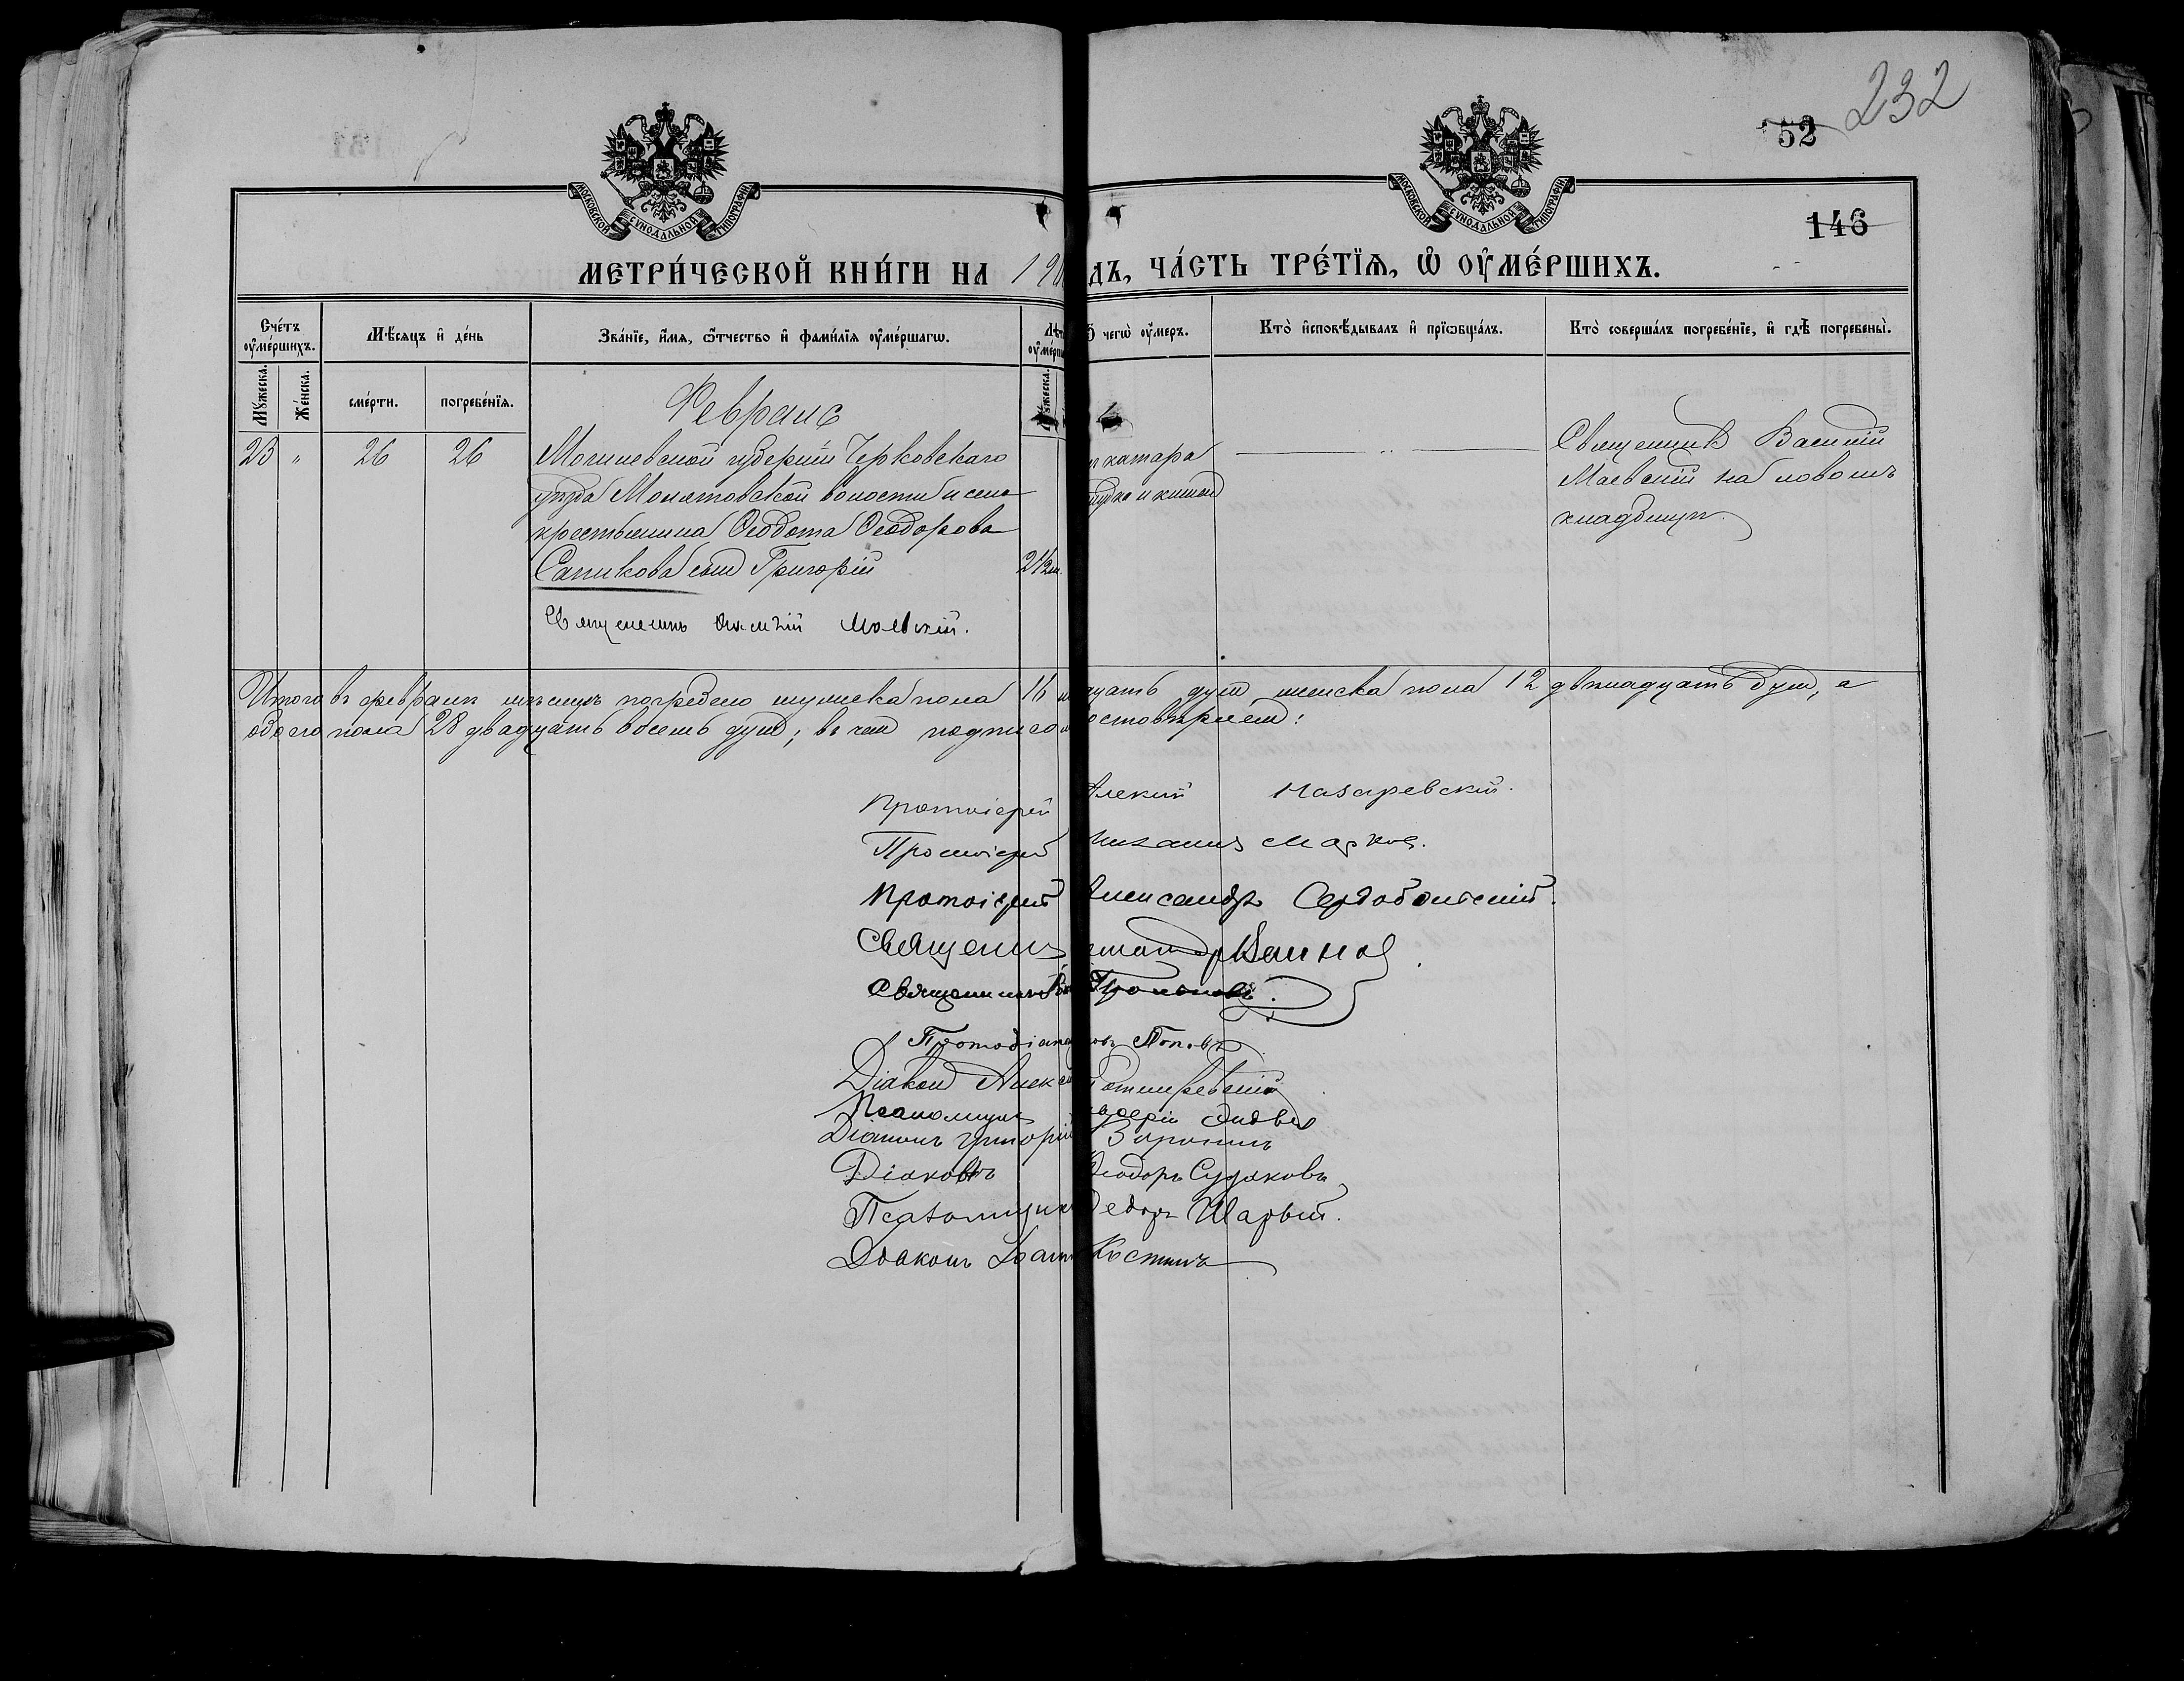 232
52
146
МОСКОВСКОЙ СѴНОДАЛЬНОЙ ТИПОГРАФІИ
МОСКОВСКОЙ СѴНОДАЛЬНОЙ ТИПОГРАФІИ
МЕТРИ́ЧЕСКОЙ КНИ́ГИ НА 190 ДЪ, ЧА́СТЬ ТРЕ́ТЇѦ, Ѡ҆ ОУ҆МЕ́РШИХЪ.
Сче́тъ оу҆ме́ршихъ.
Мѣ́сяцъ и҆ де́нь
Зва́нїе, и҆́мѧ, ѻ҆́тчество и҆ фами́лїѧ оу҆ме́ршагѡ.
Лѣт
оу҆ме́рша
чегѡ̀ оу҆́меръ.
Кто̀ и҆сповѣ́дывалъ и҆ прїѡбща́лъ.
Кто̀ соверша́лъ погребе́нїе, и҆ гдѣ̀ погребены̀.
Мꙋ́жеска.
Же́нска.
сме́рти.
погребе́нїѧ.
Февраль
23 " 26 26 Могилевской губерніи Чериковскаго
уѣзда Молятовской волости и села
крестьянина Ѳеодота Ѳеодорова
Сапикова сынъ Григорій
катара
и кишокъ
Священникъ Василій
Маевскій на новомъ
кладбищѣ.
Священникъ Василій Маевскій.
Итого въ февралѣ мѣсяцѣ погребено мужеска пола 16 дцать душъ женска пола 12 двѣнадцать душъ, а
обоего пола 28 двадцать восемь душъ; въ чемъ подписо остовѣряемъ:
Протоіерей Алексій Назаревскій.
Протоіерей Михаилъ Марков.
Протоіерей Александръ Сердобольскій.
Священникъ
Священникъ
Протодіак Поповъ
Діаконъ Алекс
Псаломщикъ
Діаконъ Григорій
Діаконъ Ѳеодоръ Судаковъ
Псаломщикъ Федоръ Шарый.
Діаконъ Іоаннъ Костинъ